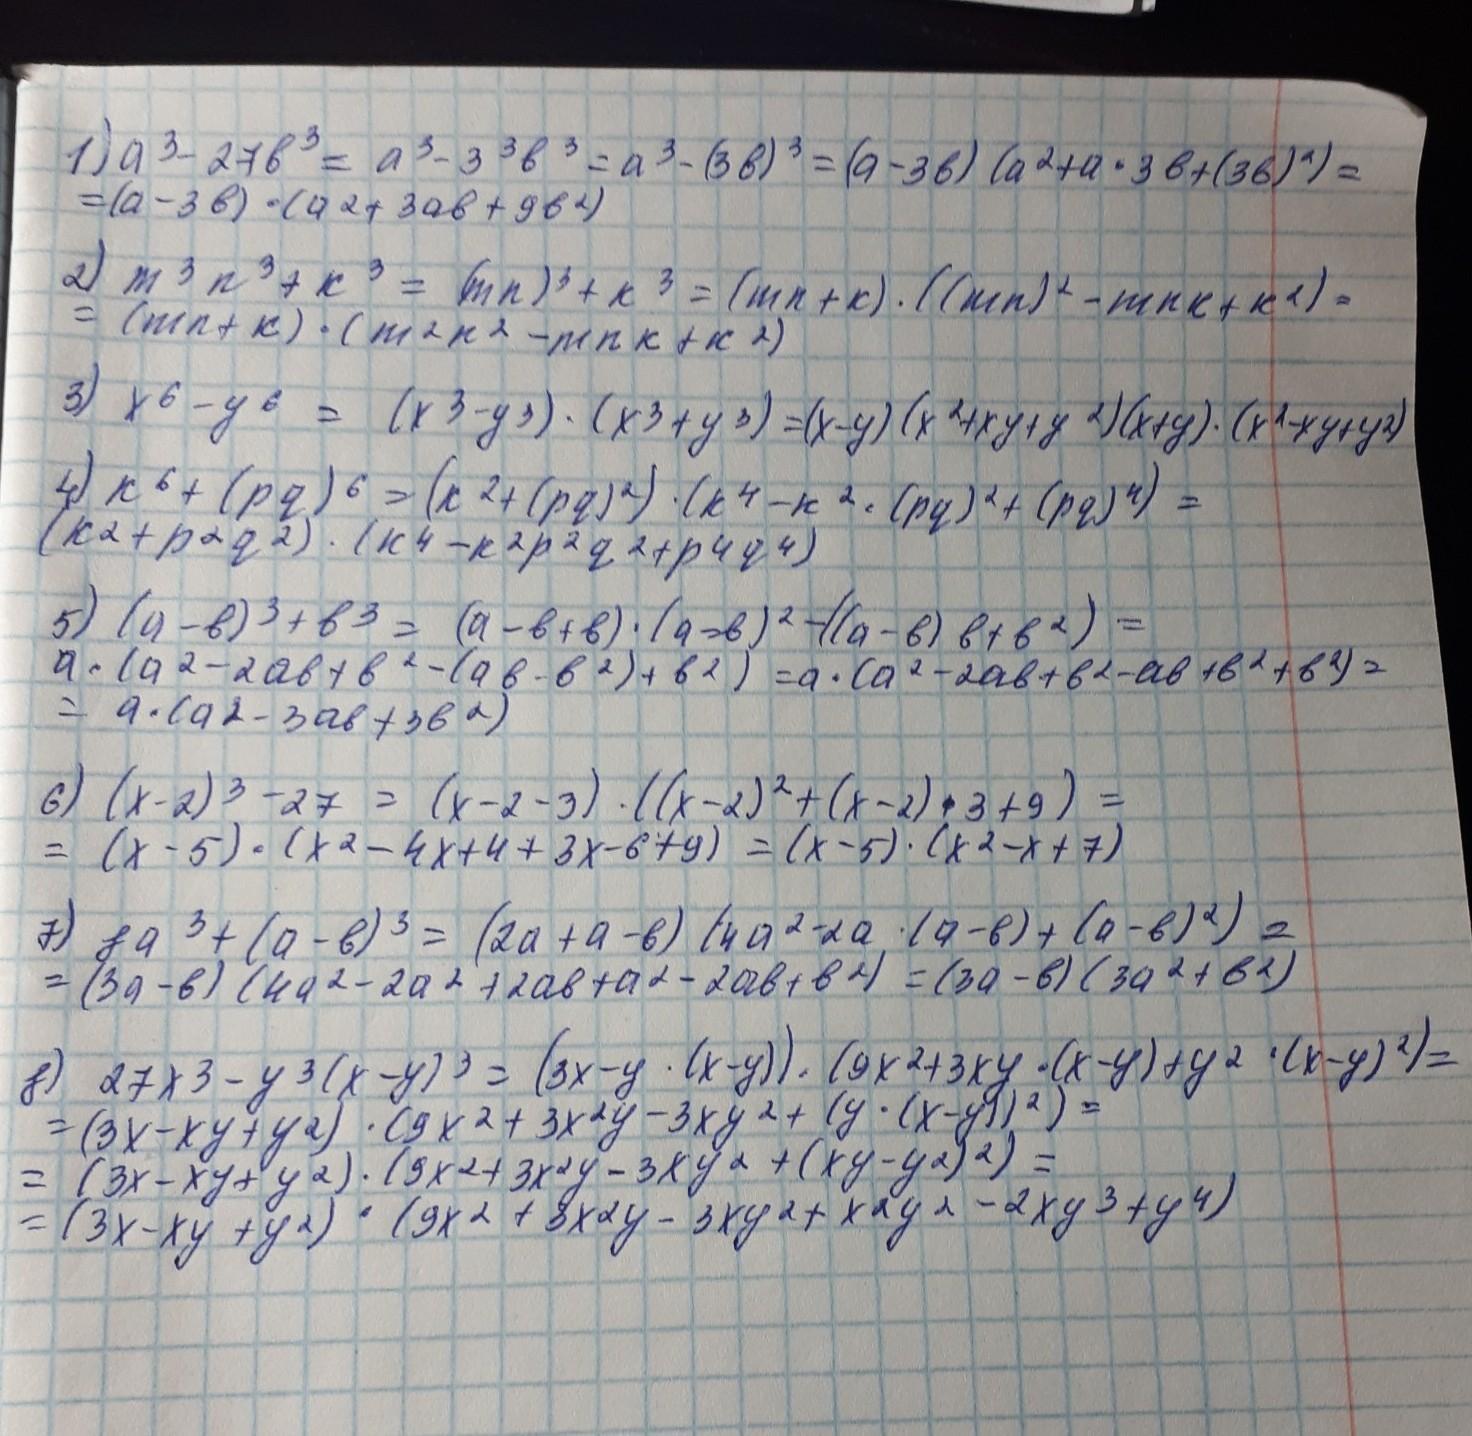 1) a³ - 27в³ = a³ - 3³в³ = a³ - (3в)³ = (a - 3в) (a² + a · 3в + (3в)²) =
= (a - 3в) · (a² + 3aв + 9в²)
2) m³n³ + к³ = (mn)³ + к³ = (mn + к) · ((mn)² - mnк + к²) =
= (mn + к) · (m²n² - mnк + к²)
3) x⁶ - y⁶ = (x³ - y³) · (x³ + y³) = (x - y) (x² + xy + y²) (x + y) · (x² - xy + y²)
4) к⁶ + (pq)⁶ = (к² + (pq)²) · (к⁴ - к² · (pq)² + (pq)⁴) =
(к² + p²q²) · (к⁴ - к²p²q² + p⁴q⁴)
5) (a - в)³ + в³ = (a - в + в) · (a - в)² - ((a - в) в + в²) =
a · (a² - 2aв + в² - (aв - в²) + в²) = a · (a² - 2aв + в² - aв + в² + в²) =
= a · (a² - 3aв + 3в²)
6) (x - 2)³ - 27 = (x - 2 - 3) · ((x - 2)² + (x - 2) · 3 + 9) =
= (x - 5) · (x² - 4x + 4 + 3x - 6 + 9) = (x - 5) · (x² - x + 7)
7) 8a³ + (a - в)³ = (2a + a - в) (4a² - 2a · (a - в) + (a - в)²) =
= (3a - в) (4a² - 2a² + 2aв + a² - 2aв + в²) = (3a - в) (3a² + в²)
8) 27x³ - y³(x - y)³ = (3x - y · (x - y)) · (9x² + 3xy · (x - y) + y² · (x - y)²) =
= (3x - xy + y²) · (9x² + 3x²y - 3xy² + (y · (x - y))²) =
= (3x - xy + y²) · (9x² + 3x²y - 3xy² + (xy - y²)²) =
= (3x - xy + y²) · (9x² + 3x²y - 3xy² + x²y² - 2xy³ + y⁴)